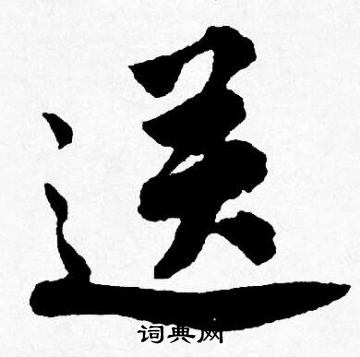 送
词典网